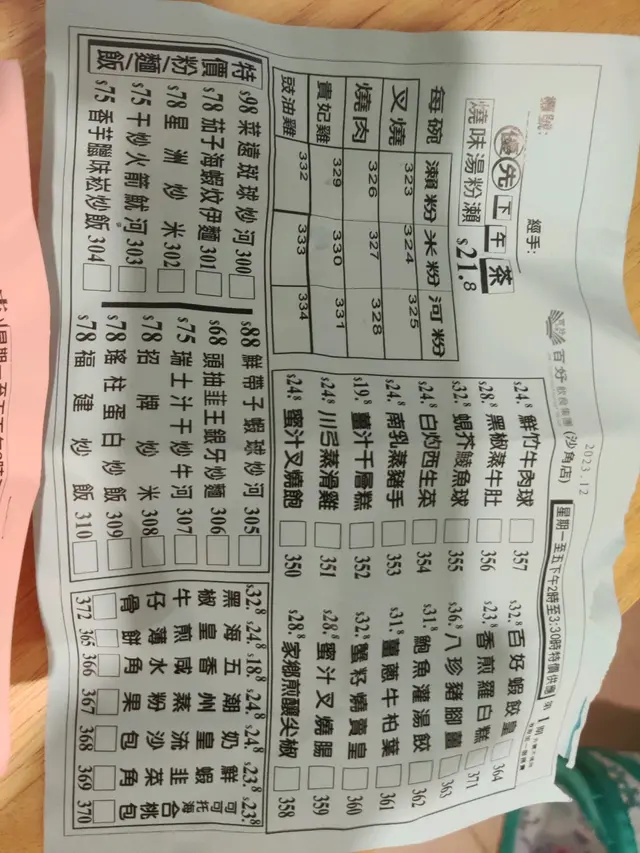 2023.12
櫃號:
經手:
百好
飲食集團
(沙角店)
優先下午茶
星期一至五下午2時至3:30時特價供應
第1期
燒味湯粉瀨 $21.8
每碗 瀨粉 米粉 河粉
叉燒 323 324 325
燒肉 326 327 328
貴妃雞 329 330 331
豉油雞 332 333 334
$24.8 鮮竹牛肉球 357
$28.8 黑椒蒸牛肚 356
$32.8 蜆芥鯪魚球 355
$24.8 白灼西生菜 354
$24.8 南乳蒸豬手 353
$19.8 薑汁千層糕 352
$24.8 川弓蒸滑雞 351
$24.8 蜜汁叉燒飽 350
$32.8 百好蝦餃皇 364
$23.8 香煎羅白糕 371
$36.8 八珍豬腳薑 363
$31.8 鮑魚灌湯餃 362
$31.8 薑蔥牛柏葉 361
$32.8 蟹籽燒賣皇 360
$28.8 蜜汁叉燒腸 359
$28.8 家鄉煎釀尖椒 358
特價粉麵飯
$98 菜遠斑球炒河 300
$78 茄子海蝦炆伊麵 301
$78 星洲炒米 302
$75 干炒火箭魷河 303
$75 香芋臘味崧炒飯 304
$88 鮮帶子蝦球炒河 305
$68 頭抽韭王銀牙炒麵 306
$75 瑞士汁干炒牛河 307
$78 招牌炒米 308
$78 瑤柱蛋白炒飯 309
$78 福建炒飯 310
$32.8 黑椒牛仔骨 372
$24.8 海皇煎薄餅 365
$18.8 五香咸水角 366
$24.8 潮州蒸粉果 367
$24.8 奶皇流沙包 368
$23.8 鮮蝦韭菜角 369
$23.8 合桃包 370